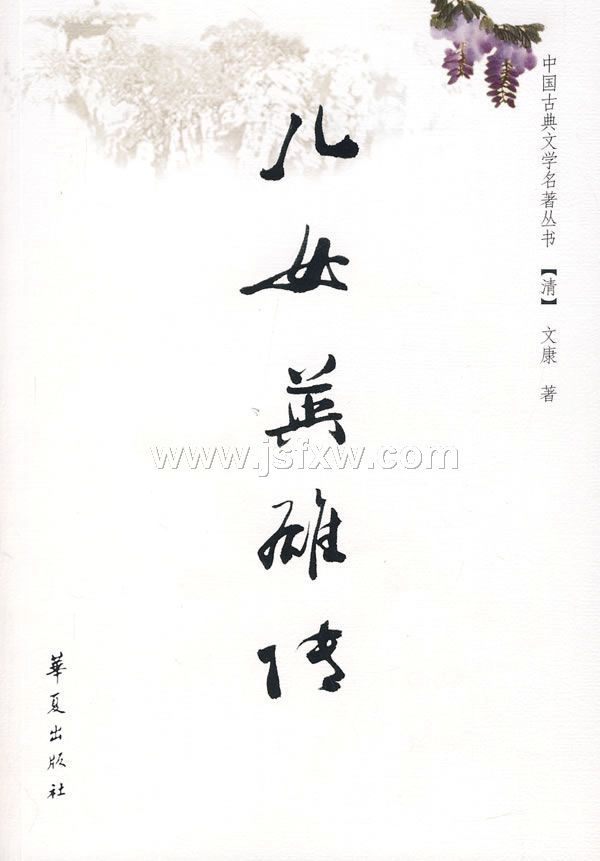 中国古典文学名著丛书 【清】 文康 著
儿女英雄传
www.jsfxw.com
華夏出版社